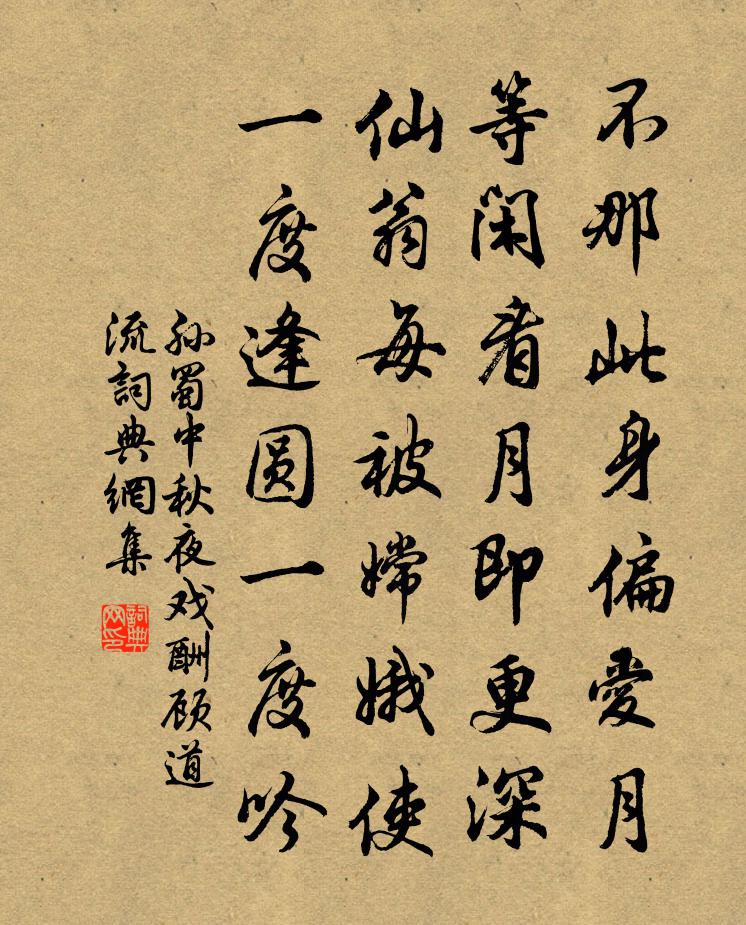 不那此身偏愛月
等閑看月即更深
仙翁每被嫦娥使
一度逢圆一度吟
孙蜀中秋夜戏酬顾道
流詞典網集
詞典
网印